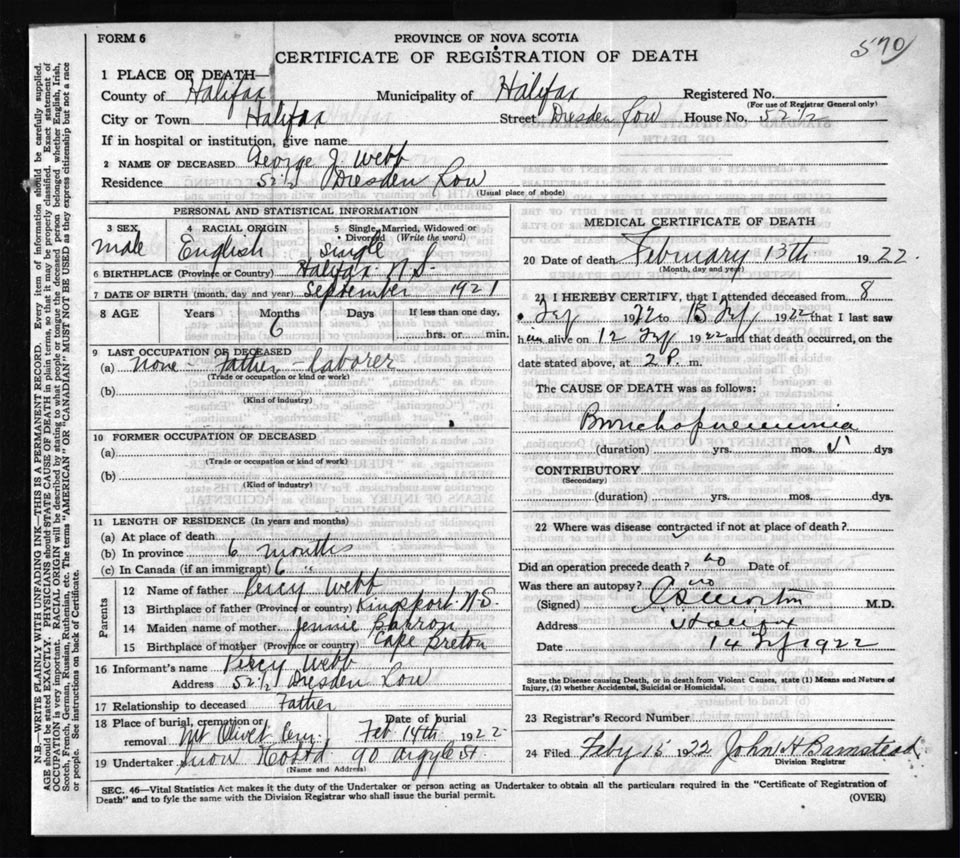 FORM 6
PROVINCE OF NOVA SCOTIA
570
CERTIFICATE OF REGISTRATION OF DEATH
1 PLACE OF DEATH—
County of Halifax Municipality of Halifax Registered No.
(For use of Registrar General only)
City or Town Halifax Street Dresden Row House No. 52 1/2
If in hospital or institution, give name
2 NAME OF DECEASED George J. Webb
Residence 52 1/2 Dresden Row
(Usual place of abode)
PERSONAL AND STATISTICAL INFORMATION
3 SEX 4 RACIAL ORIGIN 5 Single, Married, Widowed or Divorced (Write the word)
male English Single
6 BIRTHPLACE (Province or Country) Halifax N.S.
7 DATE OF BIRTH (month, day and year) September 1921
8 AGE Years Months Days If less than one day,
6 hrs. or min.
9 LAST OCCUPATION OF DECEASED
(a) None Father laborer
(Trade or occupation or kind or work)
(b)
(Kind of industry)
10 FORMER OCCUPATION OF DECEASED
(a)
(Trade or occupation or kind of work)
(b)
(Kind of industry)
11 LENGTH OF RESIDENCE (In years and months)
(a) At place of death
(b) In province 6 months
(c) In Canada (if an immigrant) 6 "
Parents
12 Name of father Percy Webb
13 Birthplace of father (Province or country) Kingsport N.S.
14 Maiden name of mother Jennie Barron
15 Birthplace of mother (Province or country) Cape Breton
16 Informant's name Percy Webb
Address 52 1/2 Dresden Row
17 Relationship to deceased Father
18 Place of burial, cremation or removal Mt Olivet Cem. Date of burial Feb 14th 1922
19 Undertaker Snow 90 Argyle St.
(Name and Address)
MEDICAL CERTIFICATE OF DEATH
20 Date of death February 13th 1922.
(Month, day and year)
21 I HEREBY CERTIFY, that I attended deceased from 8
Fey 1922 to 13 Fey 1922 that I last saw
him alive on 12 Fey 1922 and that death occurred, on the
date stated above, at 2 P. m.
The CAUSE OF DEATH was as follows:
Bronchopneumonia
(duration) yrs. mos. 5 dys
CONTRIBUTORY
(Secondary)
(duration) yrs. mos. dys.
22 Where was disease contracted if not at place of death?
Did an operation precede death? no Date of
Was there an autopsy? no
(Signed) M.D.
Address Halifax
Date 14 Fey 1922
State the Disease causing Death, or in death from Violent Causes, state (1) Means and Nature of
Injury, (2) whether Accidental, Suicidal or Homicidal.
23 Registrar's Record Number
24 Filed Feby 15 1922 John H Barnstead
Division Registrar
SEC. 46—Vital Statistics Act makes it the duty of the Undertaker or person acting as Undertaker to obtain all the particulars required in the "Certificate of Registration of
Death" and to fyle the same with the Division Registrar who shall issue the burial permit.
(OVER)
N.B.—WRITE PLAINLY WITH UNFADING INK—THIS IS A PERMANENT RECORD. Every item of information should be carefully supplied.
AGE should be stated EXACTLY. PHYSICIANS should STATE CAUSE OF DEATH in plain terms, so that it may be properly classified. Exact statement of
OCCUPATION is very important. RACIAL ORIGIN will be described by stating to what people or tongue the deceased person belonged whether English, Irish,
Scotch, French, German, Russian, Ruthenian, etc. The terms "AMERICAN" OR "CANADIAN" MUST NOT BE USED as they express citizenship but not a race
or people. See instructions on back of Certificate.